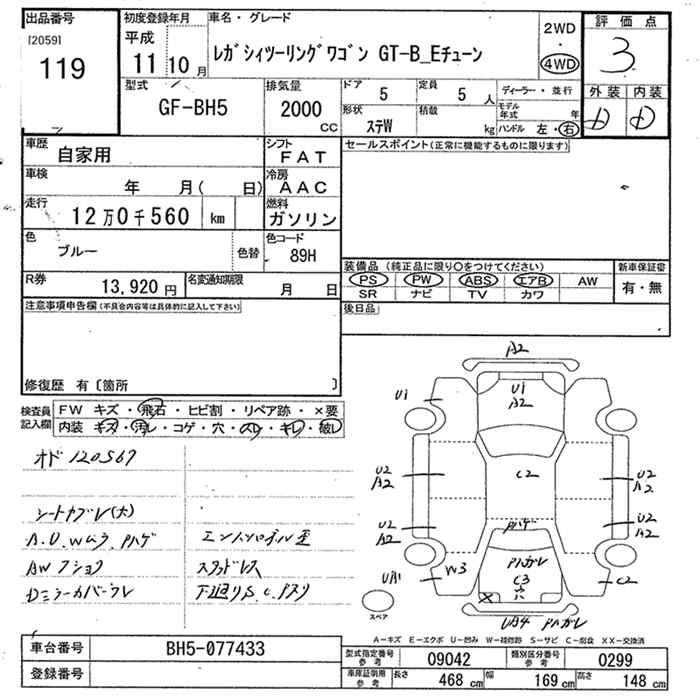 出品番号
[2059]
119
初度登録年月
平成
11 10 月
車名・グレード
レガシィツーリングワゴン GT-B_Eチューン
2WD
・
4WD
評価点
3
外装 内装
D D
型式
GF-BH5
排気量
2000
CC
ドア 5
定員 5 人
ディーラー・並行
形状
ステW
積載
kg
モデル年式 年
ハンドル 左・右
車歴
自家用
シフト
FAT
車検
年 月( 日)
冷房
AAC
走行
12万0千560 km
燃料
ガソリン
色
ブルー
色替
色コード
89H
R券
13,920 円
名変通知期限
月 日
セールスポイント(正常に機能するものに限ります)
装備品(純正品に限り○をつけてください)
PS PW ABS エアB AW
SR ナビ TV カワ
新車保証書
有・無
後日品
注意事項申告欄(不具合内容等は具体的に記入して下さい)
修復歴 有〔箇所 〕
検査員記入欄
FW キズ・飛石・ヒビ割・リペア跡・×要
内装 キズ・汚レ・コゲ・穴・スレ・キレ・破レ
オド 120567
シートヤブレ(大)
A.U.Wムラ, Pハゲ
エンジンオイル
下廻りS.C.
A2
U1
U1
A2
C2
U2
A2
U2
A2
U2
A2
U2
A2
Pハゲ
W3
Pハガレ
C3
穴
C2
スペア
Pハガレ
A-キズ E-エクボ U-凹み W-補修跡 S-サビ C-腐食 XX-交換済
車台番号
BH5-077433
登録番号
型式指定番号
参考
09042
類別区分番号
参考
0299
車庫証明用
参考
長さ 468 cm
幅 169 cm
高さ 148 cm